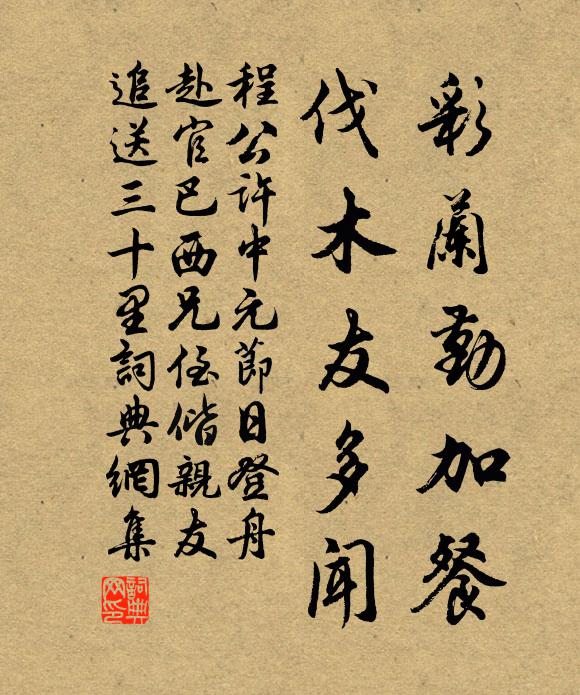 彩蘭勤加餐
伐木友多聞
程公許中元節日登舟
赴官巴西兄侄偕親友
追送三十里詞典網集
詞典网印